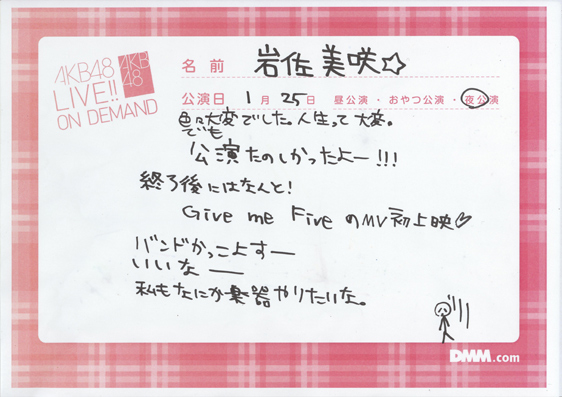 AKB48
LIVE!!
ON DEMAND
AKB
48
名前 岩佐美咲☆
公演日 1月25日 昼公演・おやつ公演・夜公演
色々大変でした。人生って大変。
でも
公演たのしかったよー!!!
終了後にはなんと!
Give me Five のMV初上映♡
バンドかっこよすー
いいなー
私もなにか楽器やりたいな。
DMM.com